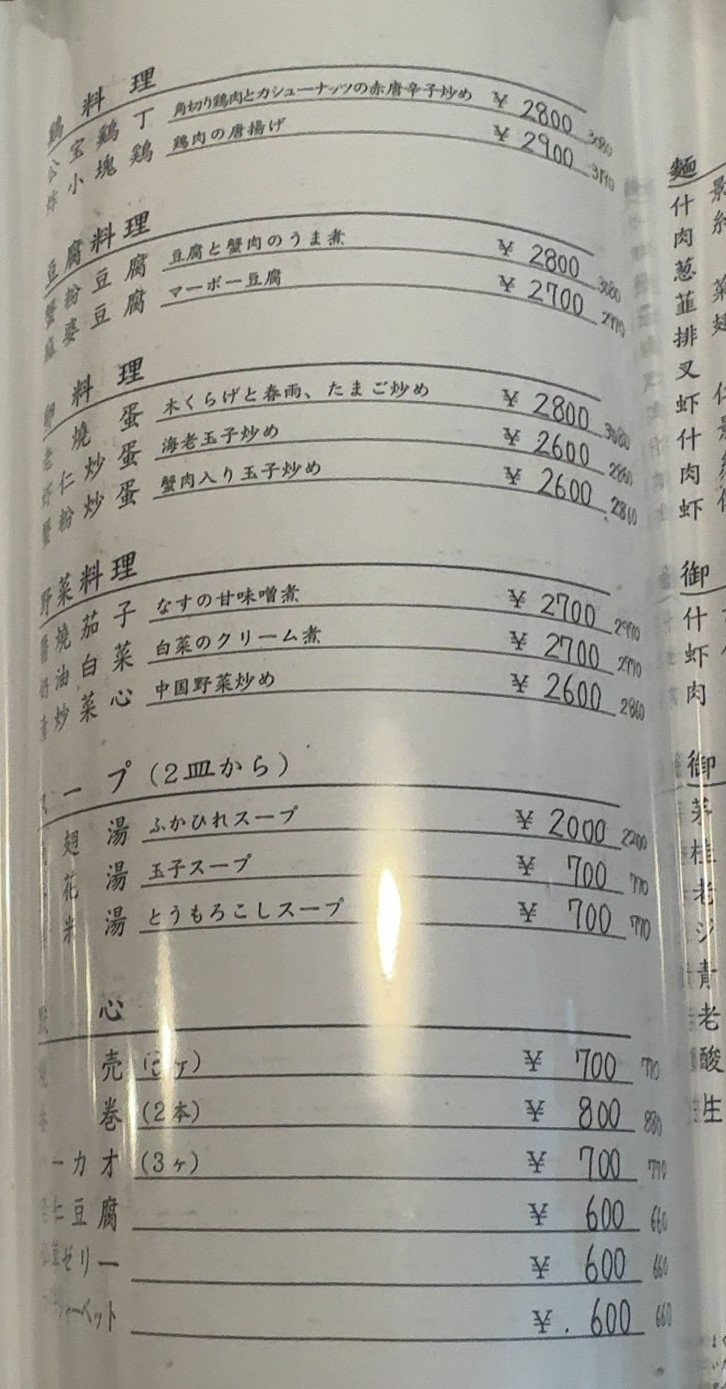 鶏料理
公宝鶏丁 角切り鶏肉とカシューナッツの赤唐辛子炒め ¥2800 3080
炸小塊鶏 鶏肉の唐揚げ ¥2900 3190
豆腐料理
蟹粉豆腐 豆腐と蟹肉のうま煮 ¥2800 3080
麻婆豆腐 マーボー豆腐 ¥2700 2970
卵料理
老燒蛋 木くらげと春雨、たまご炒め ¥2800 3080
仁炒蛋 海老玉子炒め ¥2600 2860
蟹粉炒蛋 蟹肉入り玉子炒め ¥2600 2860
野菜料理
醬燒茄子 なすの甘味噌煮 ¥2700 2970
奶油白菜 白菜のクリーム煮 ¥2700 2970
炒菜心 中国野菜炒め ¥2600 2860
スープ(2皿から)
翅湯 ふかひれスープ ¥2000 2200
花湯 玉子スープ ¥700 770
米湯 とうもろこしスープ ¥700 770
心
売 ヶ) ¥700 770
巻 (2本) ¥800 880
ーカオ (3ヶ) ¥700 770
仁豆腐 ¥600 660
ゼリー ¥600 660
シャーベット ¥.600 660
麺
什
肉
葱
韮
排
叉
虾
什
肉
虾
御
什
虾
肉
御
桂
老
ジ
青
老
酸
生